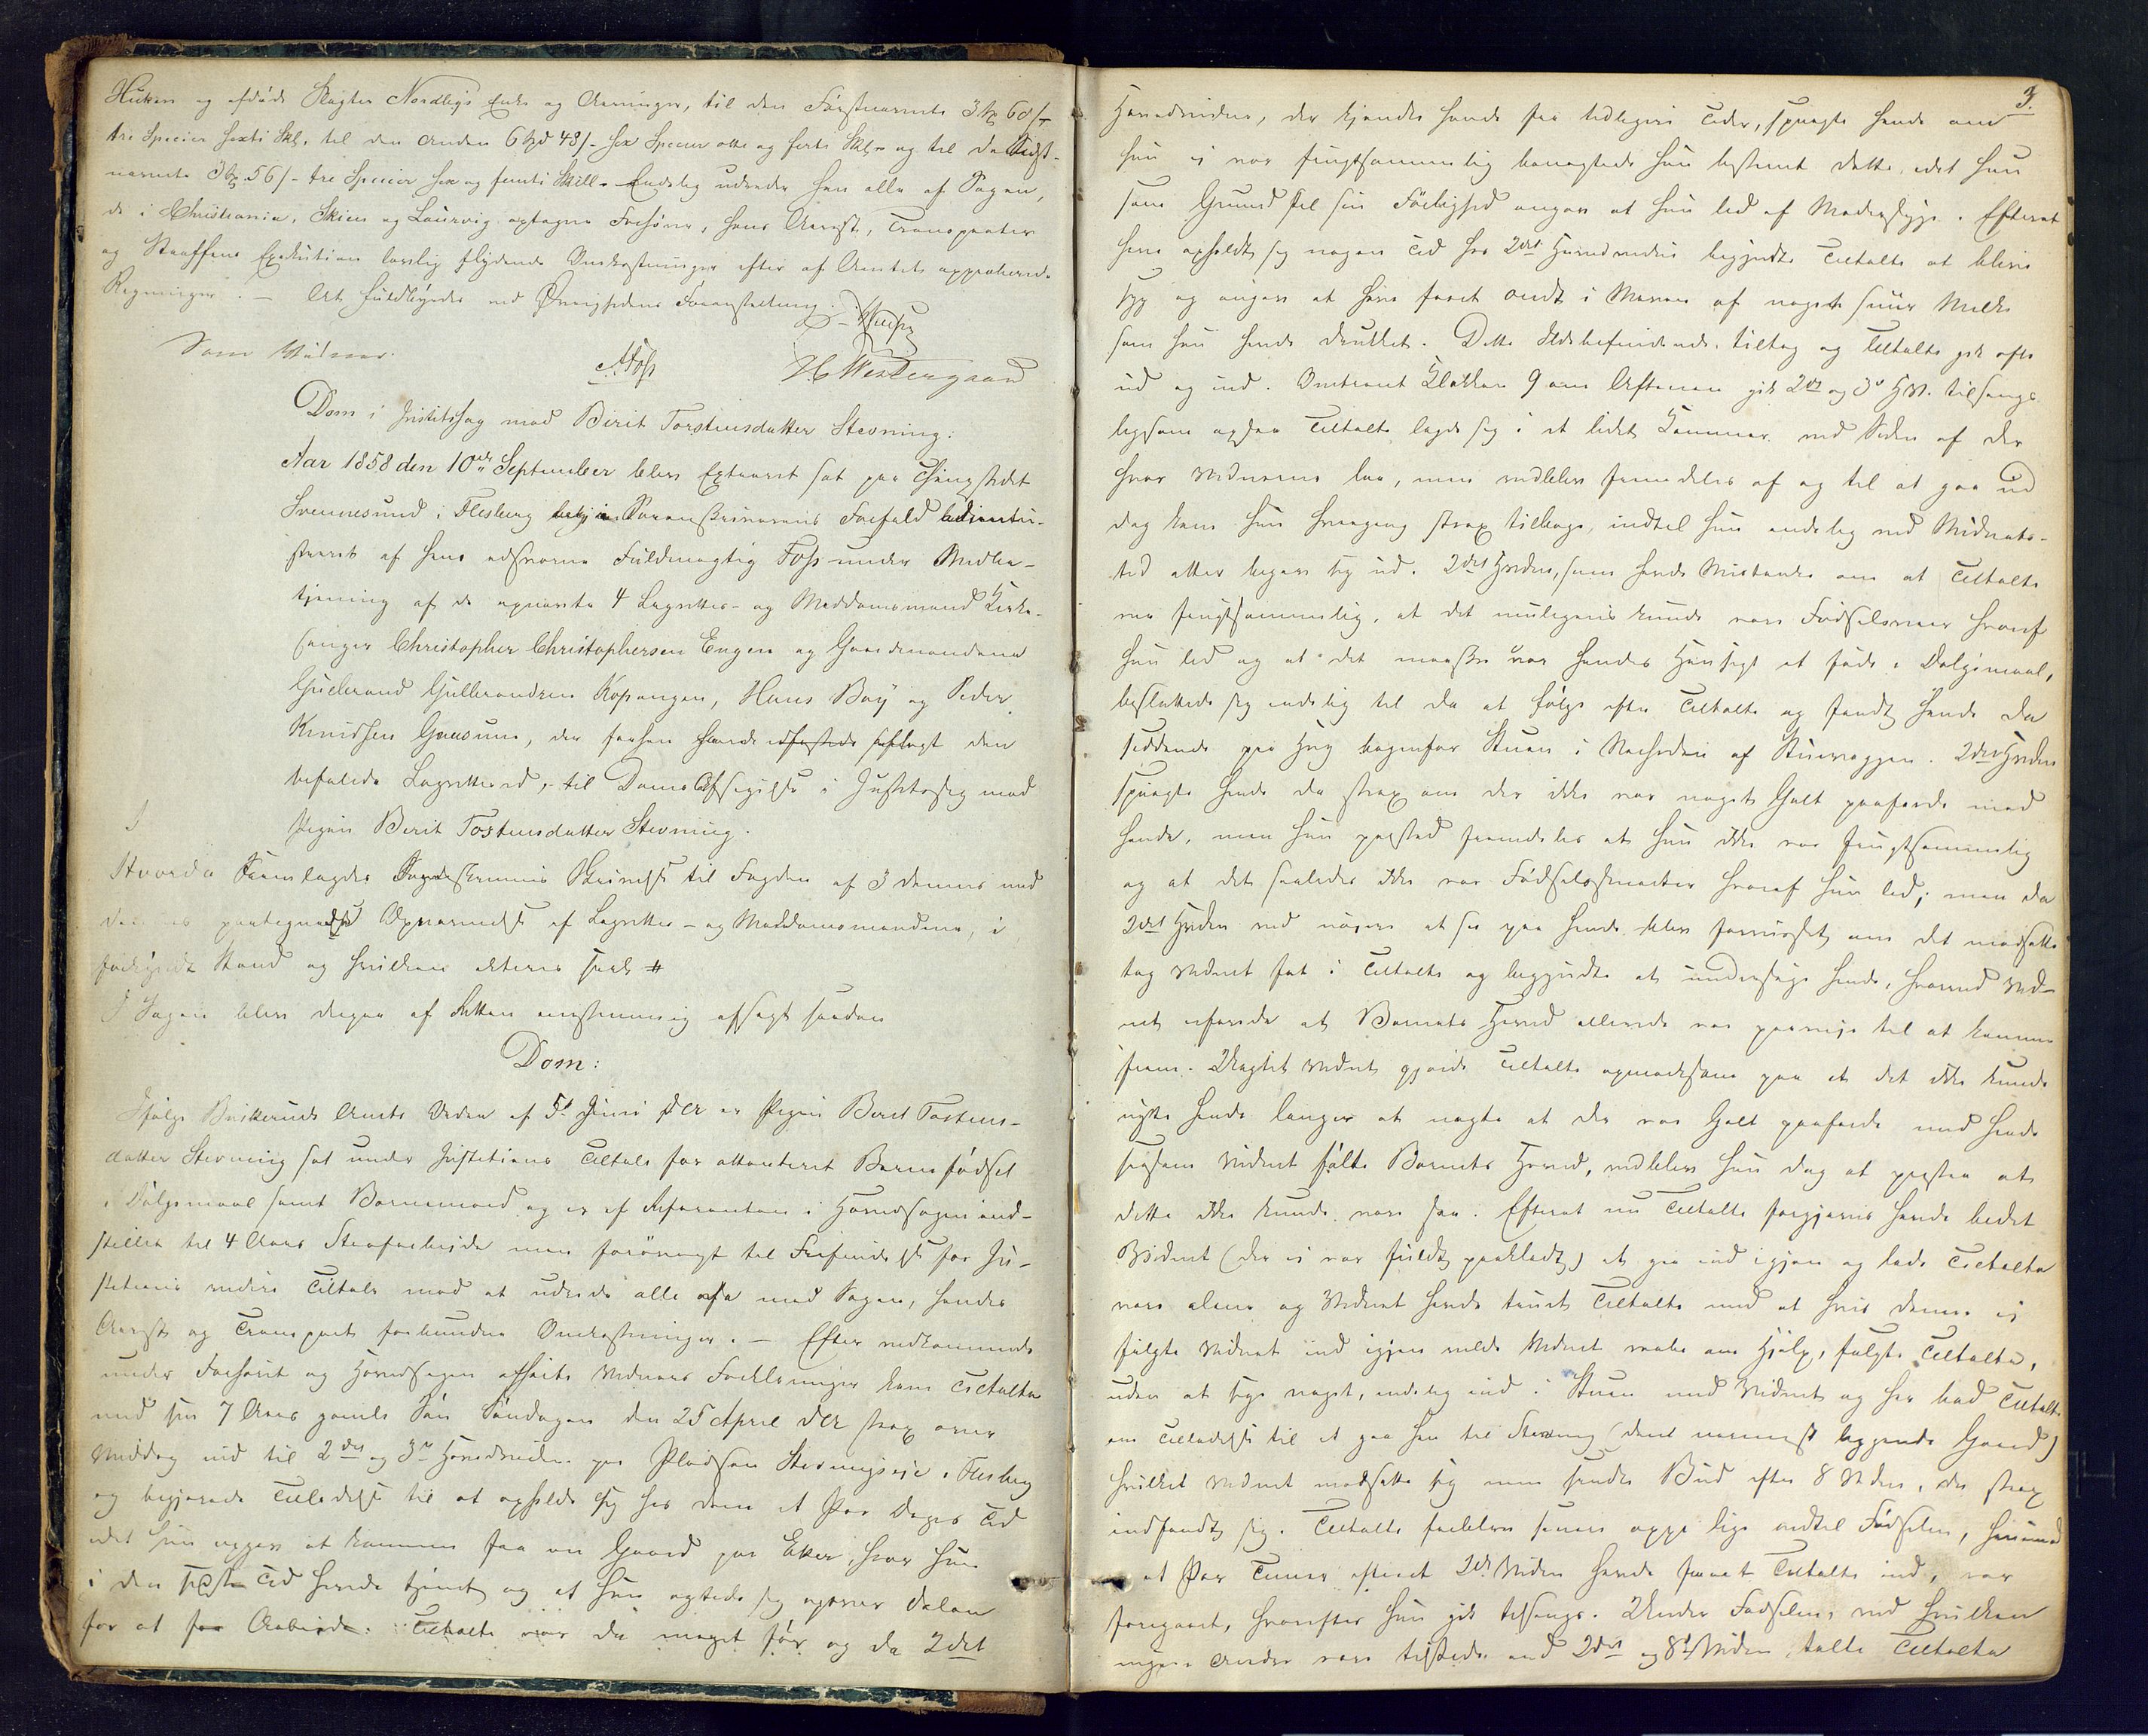 Huken og afdøde Slagter Nordbys Enke og Arvinger, til den Førstnævnte 3 Spd 60 /-
tre Specier sexti Skl, til den Anden 6 Spd 48/- sex Specier otte og forti Skl - og til de Sidst-
nævnte 3 Spd 56/- tre Specier sex og femti Skill. Endelig udreder han alle af Sagen,
de i Christiania, Skien og Laurvig optagne Forhører, hans Arrest, Transporter
og Straffens Exekution lovlig flydende Omkostninger efter af Amtet approberede
Regninger. — At fuldbyrdes ved Øvrighedens Foranstaltning.
Som Vidner.
AFoss
H Westergaard
Dom i Justitssag mod Birit Torstensdatter Stevning:
Aar 1858 den 10de September blev Extraret sat paa Thingstedet
Svennesund i Flesberg i Sorenskriverens Forfald administre-
reret af hans edsvorne Fuldmægtig Foss under Medbe-
tjening af de opnævnte 4 Lagrettes- og Meddomsmænd Kirke-
sanger Christopher Christophersen Engen og Gaardmændene
Gulbrand Gulbrandsen Kopangen, Hans Bøy og Peder
Knudsen Gaasum, der forhen havde aflagt den
befalede Lagrettesed, til Doms Afsigelse i Justitssag mod
Pigen Birit Tostensdatter Stevning.
Hvorda fremlagdes Sorenskriverens Skrivelse til Fogden af 3 dennes med
paategnede Opnævnelse af Lagrettes- og Meddomsmændene, i
forkyndt Stand og hvilken
I Sagen blev derpaa af Retten eenstemmig afsagt saadan
Dom:
Ifølge Buskeruds Amts Orden af 5te Juni d.A. er Pigen Berit Tostens-
datter Stevning sat under Justitiens Tiltale for attenteret Barnefødsel
i Dølgsmaal samt Barnemord og er af Referenten i Hovedsagen ind-
stillet til 4 Aars Strafarbeide men forøvrigt til Frifindelse for Ju-
stitiens videre Tiltale mod at udrede alle af med Sagen, hendes
Arrest og Transport forbundne Omkostninger. — Efter vedkommende
under Forhøret og Hovedsagen afhørte Vidners Forklaringer kom Tiltalte
med sin 7 Aars gamle Søn Søndagen den 25 April d.A. strax over
Middag ind til 2det og 3die Hovedvidne paa Pladsen Stevningseie i Flesberg
og begjærede Tilladelse til at opholde sig hos dem et Par Dages Tid
idet hun opgav at komme fra en Gaard paa Eker, hvor hun
i den sidste Tid havde tjent og at hun agtede sig opover Dalen
for at faa Arbeide. Tiltalte var da meget før og da 2det
3.
Hovedvidne, der kjendte hende fra tidligere Tider, spurgte hende om
hun ej var frugtsommelig benægtede hun bestemt dette, idet hun
som Grund til sin Førlighed angav at hun led af Modersyge. Efterat
have opholdt sig nogen Tid hos 2det Hovedvidne begyndte Tiltalte at blive
syg og angav at have faaet ondt i Maven af noget suur Melk
som hun havde drukket. Dette Ildebefindende tiltog og Tiltalte gik ofte
ud og ind. Omtrent Klokken 9 om Aftenen gik 2det og 3die HV. tilsengs
ligesom ogsaa Tiltalte lagde sig i et lidet Kammer ved Siden af der
hvor Vidnerne laa, men vedblev fremdeles af og til at gaa ud
dog kom hun hvergang strax tilbage, indtil hun endelig ved Midnats-
tid atter begav sig ud. 2det Hvidne, som havde Mistanke om at Tiltalte
var frugtsommelig, at det muligens kunde være Fødselsveer hvoraf
hun led og at det maaske var hendes Hensigt at føde i Dølgsmaal,
besluttede sig endelig til da at følge efter Tiltalte og fandt hende da
siddende paa Hug bagenfor Stuen i Nærheden af Stuevæggen. 2det Hvidne
spurgte hende da strax om der ikke var noget Galt paafærde med
hende, men hun paastod fremdeles at hun ikke var frugtsommelig
og at det saaledes ikke var Fødselssmerter hvoraf hun led; men da
2det Hvidne ved nøiere at see paa hende blev forvisset om det modsatte
tog Vidnet fat i Tiltalte og begyndte at undersøge hende, hvorved Vid-
net erfarede at Barnets Hoved allerede var paaveje til at komme
frem. Uagtet Vidnet gjorde Tiltalte opmærksom paa at det ikke kunde
nytte hende længer at nægte at der var Galt paafærde med hende
ligesom Vidnet følte Barnets Hoved, vedblev hun dog at paastaa at
dette ikke kunde være saa. Efterat nu Tiltalte forgjæves havde bedet
Vidnet (der ei var fuldt paaklædt) at gaa ind igjen og lade Tiltalte
være alene og Vidnet havde truet Tiltalte med at hvis denne ei
fulgte Vidnet ind igjen vilde Vidnet raabe om Hjælp, fulgte Tiltalte,
uden at sige noget, endelig ind i Stuen med Vidnet og her bad Tiltalte
om Tilladelse til at gaa hen til Stevning (den nærmest liggende Gaard)
hvilket Vidnet modsatte sig men sendte Bud efter 8 Vidne, der strax
indfandt sig. Tiltalte forblev senere oppe lige indtil Fødselen, hvilket
et Par Timer efterat 2det Vidne havde faaet Tiltalte ind, var
foregaaet, hvorefter hun gik tilsengs. Under Fødselen, ved hvilken
ingen Andre vare tilstede end 2det og 8de Vidne, talte Tiltalte